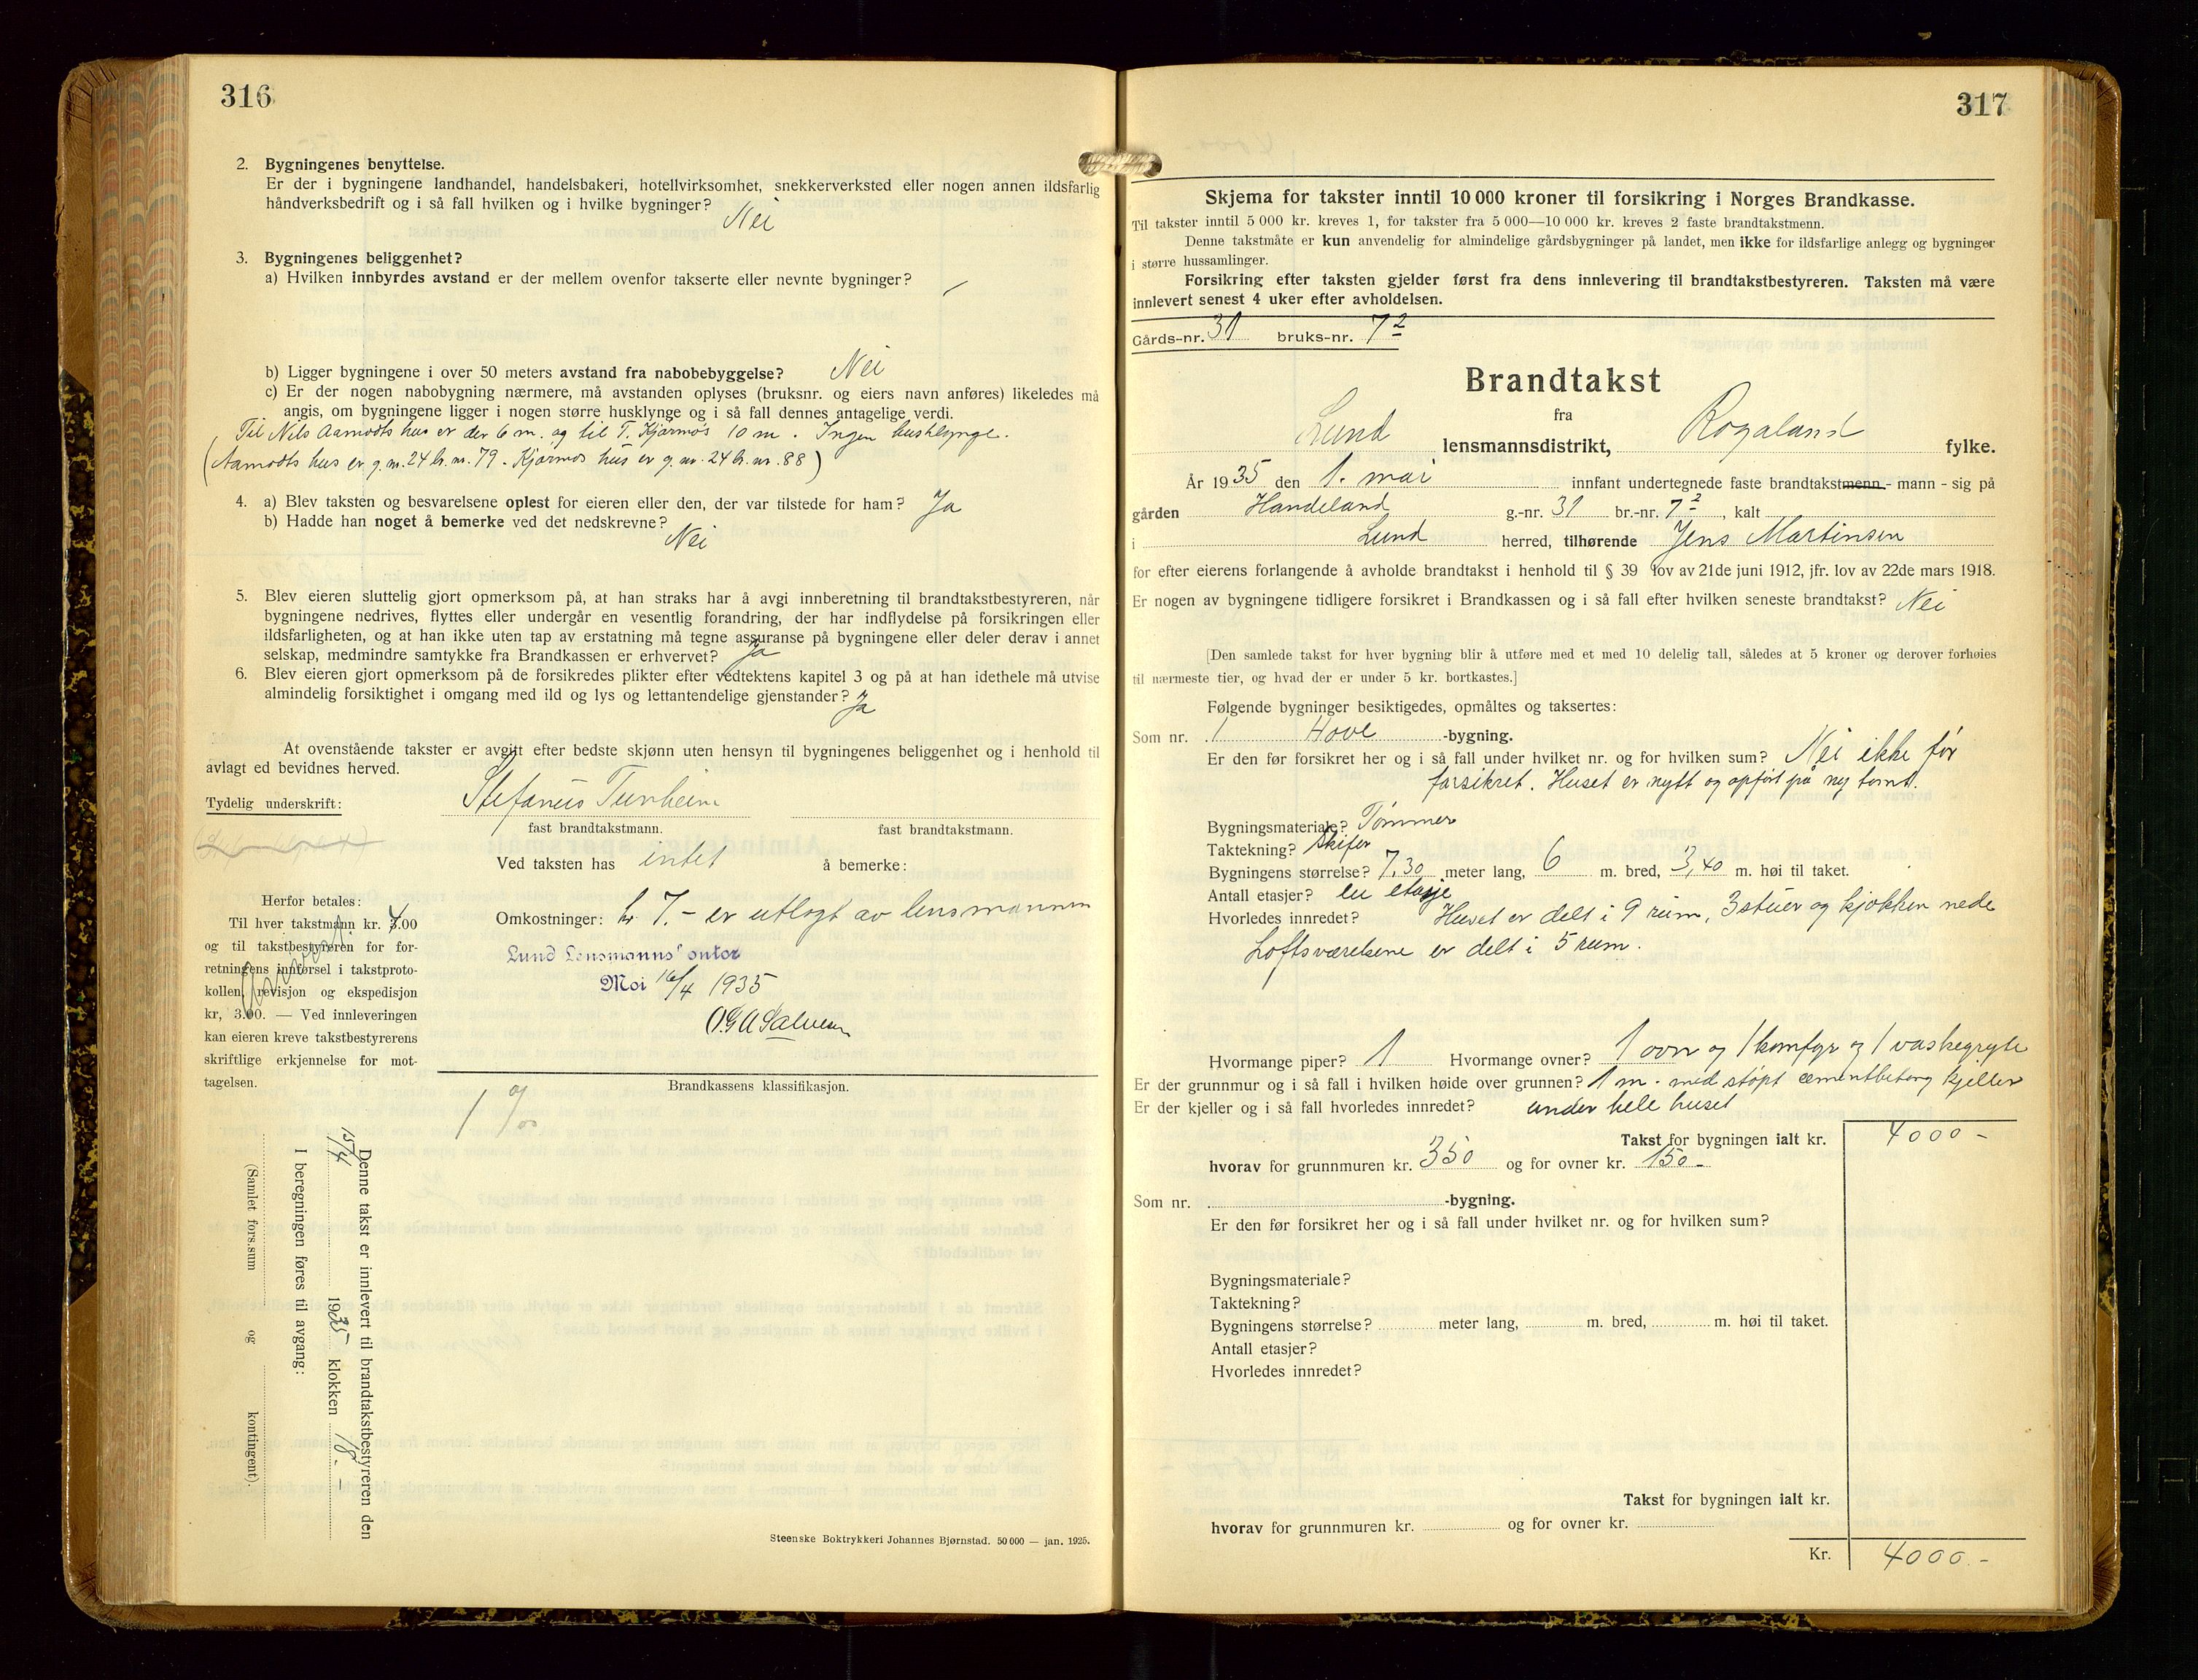 316
2. Bygningenes benyttelse.
Er der i bygningene landhandel, handelsbakeri, hotellvirksomhet, snekkerverksted eller nogen annen ildsfarlig
håndverksbedrift og i så fall hvilken og i hvilke bygninger? Nei
3. Bygningenes beliggenhet?
a) Hvilken innbyrdes avstand er der mellem ovenfor takserte eller nevnte bygninger?
b) Ligger bygningene i over 50 meters avstand fra nabobebyggelse? Nei
c) Er der nogen nabobygning nærmere, må avstanden oplyses (bruksnr. og eiers navn anføres) likeledes må
angis, om bygningene ligger i nogen større husklynge og i så fall dennes antagelige verdi.
Til Nils Aamodts hus er der 6 m. og til T. Kjørmos 10 m. Ingen husklynge.
(Aamodts hus er g.nr. 24 br. nr. 79 - Kjørmos hus er g. nr. 24 br. nr. 88)
4. a) Blev taksten og besvarelsene oplest for eieren eller den, der var tilstede for ham? Ja
b) Hadde han noget å bemerke ved det nedskrevne?
Nei
5. Blev eieren sluttelig gjort opmerksom på, at han straks har å avgi innberetning til brandtakstbestyreren, når
bygningene nedrives, flyttes eller undergår en vesentlig forandring, der har indflydelse på forsikringen eller
ildsfarligheten, og at han ikke uten tap av erstatning må tegne assuranse på bygningene eller deler derav i annet
selskap, medmindre samtykke fra Brandkassen er erhvervet? Ja
6. Blev eieren gjort opmerksom på de forsikredes plikter efter vedtektens kapitel 3 og på at han idethele må utvise
almindelig forsiktighet i omgang med ild og lys og lettantendelige gjenstander? Ja
At ovenstående takster er avgitt efter bedste skjønn uten hensyn til bygningenes beliggenhet og i henhold til
avlagt ed bevidnes herved.
Tydelig underskrift: Stefanus Tunheim
fast brandtakstmann. fast brandtakstmann.
Ved taksten has intet å bemerke:
Herfor betales:
Til hver takstmann kr. 4.00
og til takstbestyreren for for-
retningens innførsel i takstproto-
kollen, revisjon og ekspedisjon
kr, 3.00. — Ved innleveringen
kan eieren kreve takstbestyrerens
skriftlige erkjennelse for mot-
tagelsen.
Omkostninger: kr 7.- er utlagt av lensmannen
Lund Lensmanns' ontor
Moi 16/4 1935
O.G.A. Salvesen
Brandkassens klassifikasjon.
1 %
Denne takst er innlevert til brandtakstbestyreren den
15/4 1935 klokken 18.-
I beregningen føres til avgang:
(Samlet fors.sum og kontingent).
Steenske Boktrykkeri Johannes Bjørnstad. 50 000 — jan. 1925.
317
Skjema for takster inntil 10 000 kroner til forsikring i Norges Brandkasse.
Til takster inntil 5 000 kr. kreves 1, for takster fra 5 000—10 000 kr. kreves 2 faste brandtakstmenn.
Denne takstmåte er kun anvendelig for almindelige gårdsbygninger på landet, men ikke for ildsfarlige anlegg og bygninger
i større hussamlinger.
Forsikring efter taksten gjelder først fra dens innlevering til brandtakstbestyreren. Taksten må være
innlevert senest 4 uker efter avholdelsen.
Gårds-nr. 31 bruks-nr. 7²
Brandtakst
fra
Lund lensmannsdistrikt, Rogaland fylke.
År 1935 den 1. mai innfant undertegnede faste brandtakstmenn - mann - sig på
gården Handeland g.-nr. 31 br.-nr. 7², kalt
i Lund herred, tilhørende Jens Martinsen
for efter eierens forlangende å avholde brandtakst i henhold til § 39 lov av 21de juni 1912, jfr. lov av 22de mars 1918.
Er nogen av bygningene tidligere forsikret i Brandkassen og i så fall efter hvilken seneste brandtakst? Nei
[Den samlede takst for hver bygning blir å utføre med et med 10 delelig tall, således at 5 kroner og derover forhøies
til nærmeste tier, og hvad der er under 5 kr. bortkastes.]
Følgende bygninger besiktigedes, opmåltes og taksertes:
Som nr. 1 Hove -bygning.
Er den før forsikret her og i så fall under hvilket nr. og for hvilken sum? Nei ikke før
forsikret. Huset er nytt og opført på ny tomt.
Bygningsmateriale? Tømmer
Taktekning? Skifer
Bygningens størrelse? 7.30 meter lang, 6 m. bred, 3,40 m. høi til taket.
Antall etasjer? en etasje
Hvorledes innredet? Huset er delt i 9 rum, 3 stuer og kjøkken nede
Loftsværelsene er delt i 5 rum.
Hvormange piper? 1 Hvormange ovner? 1 ovn og 1 komfyr og 1 vaskegryte
Er der grunnmur og i så fall i hvilken høide over grunnen? 1 m. med støpt cementbetong kjeller
Er der kjeller og i så fall hvorledes innredet? under hele huset
Takst for bygningen ialt kr. 4000 -
hvorav for grunnmuren kr. 350 og for ovner kr. 150 -
Som nr. -bygning.
Er den før forsikret her og i så fall under hvilket nr. og for hvilken sum?
Bygningsmateriale?
Taktekning?
Bygningens størrelse? meter lang, m. bred, m. høi til taket.
Antall etasjer?
Hvorledes innredet?
Takst for bygningen ialt kr.
hvorav for grunnmuren kr. og for ovner kr.
Kr. 4000.-